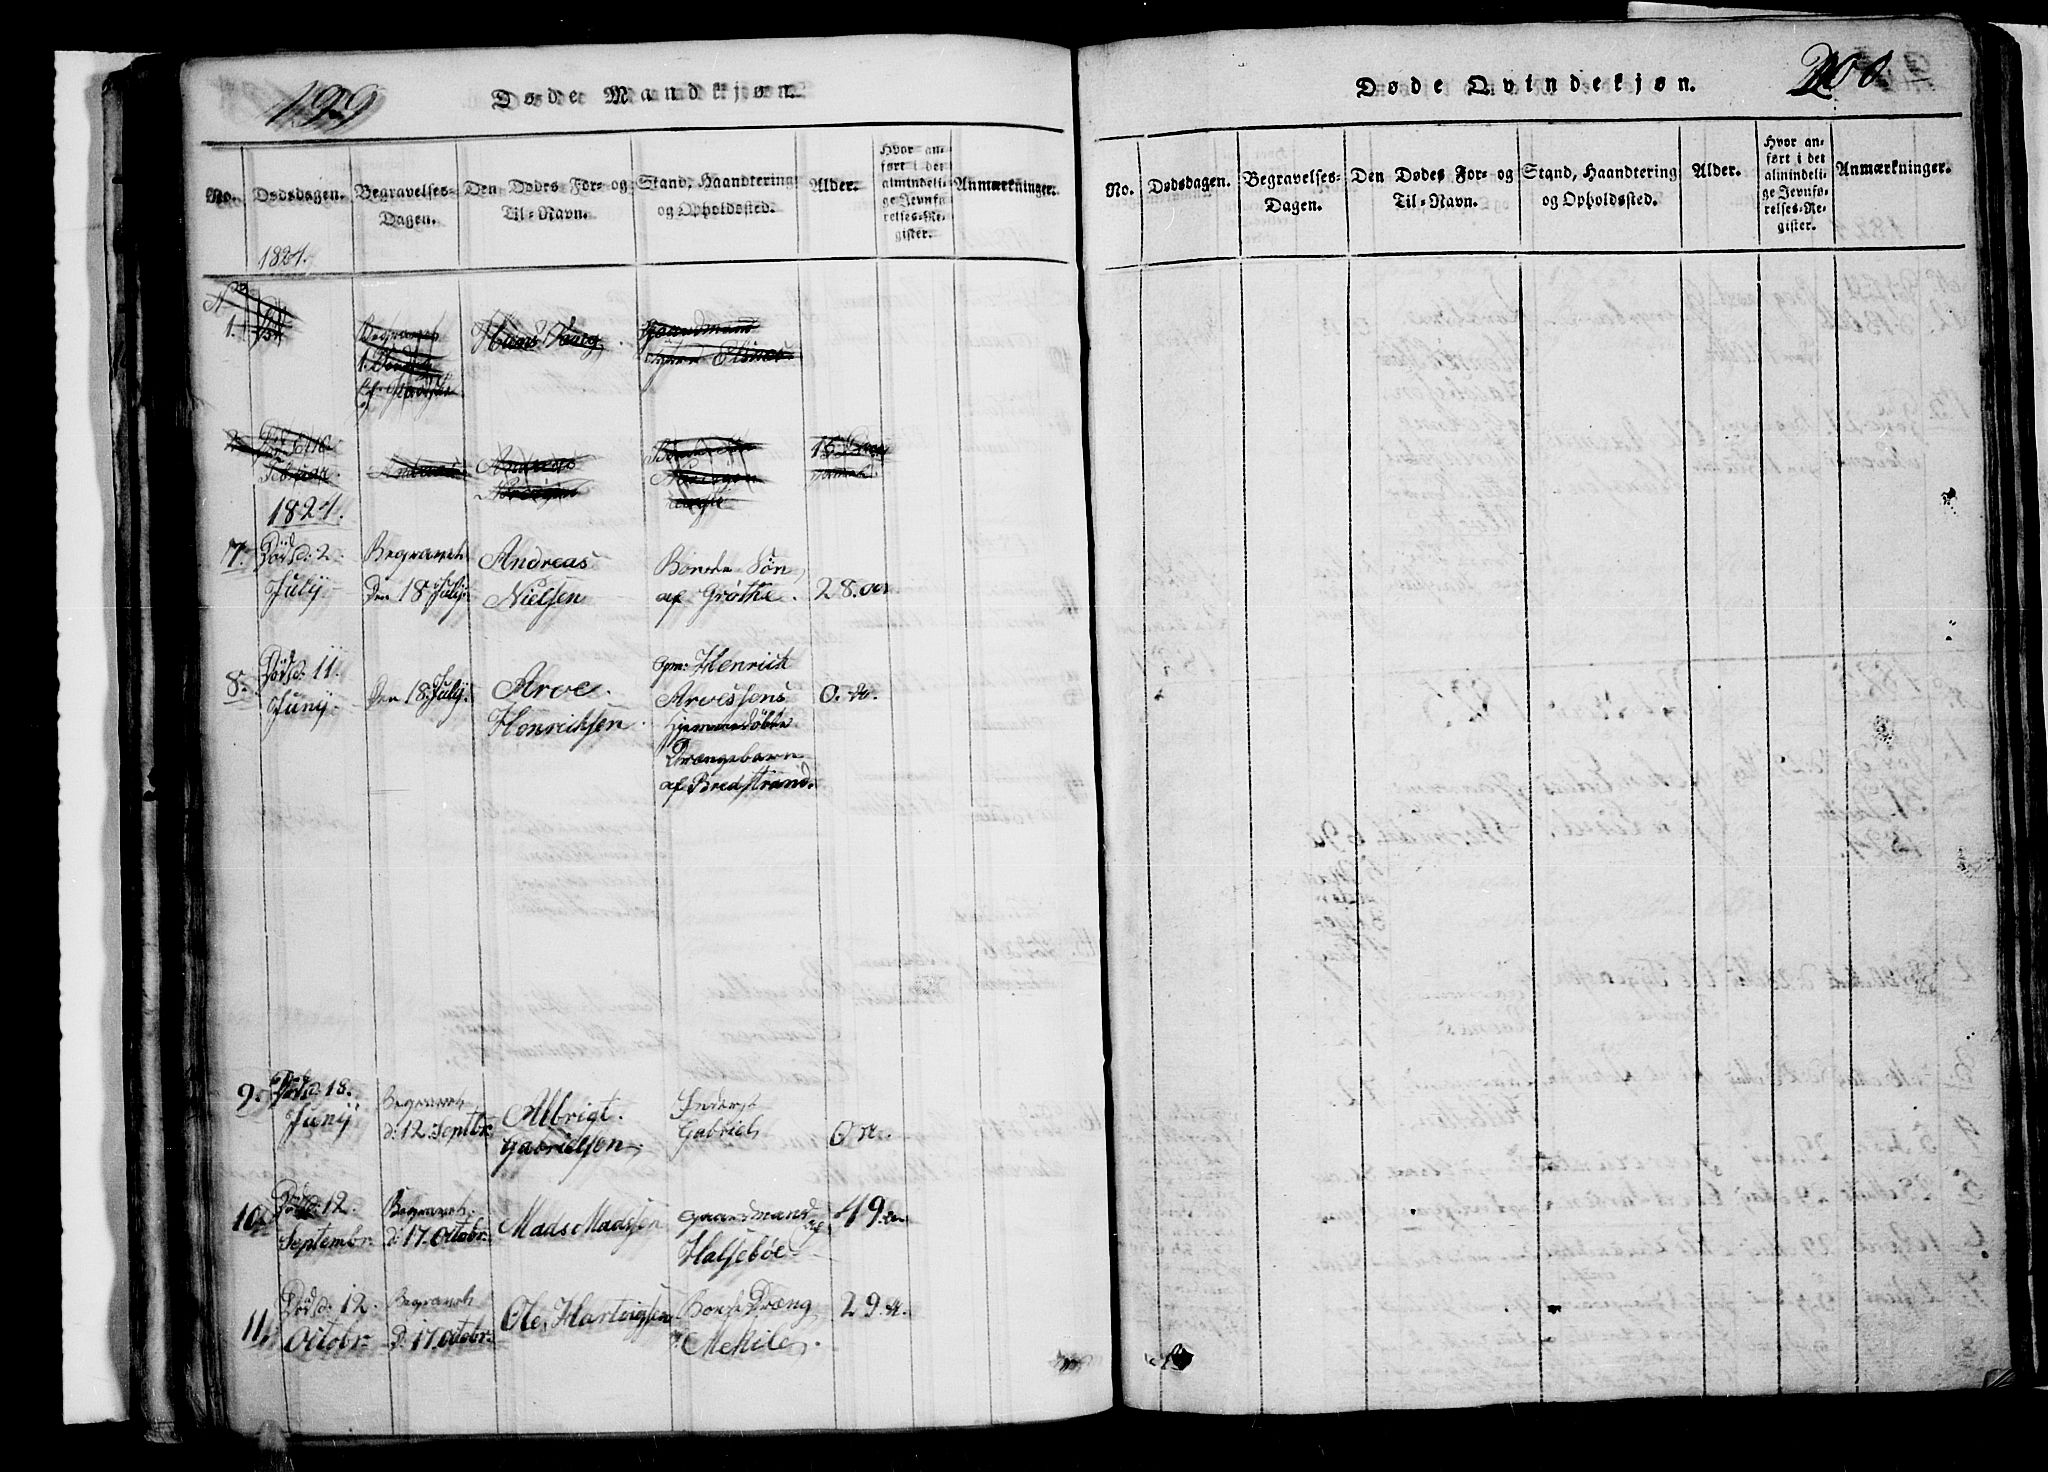 199
Døde Mandkjøn.
No.
Dødsdagen.
Begravelses-
Dagen.
Den Dødes For- og
Til-Navn.
Stand, Haandtering
og Opholdssted.
Alder.
Hvor an-
ført i det
almindeli-
ge Jevnfø-
relses-Re-
gister.
Anmærkninger.
1824.
No
1.
Begraveh
Hans
Gaardmand
2.
Andreas
1824.
7.
Død d: 2
July
Begraveh
Den 18 July
Andreas
Nielsen
Bonde Søn
af Grøthe.
28. aar
8.
Død d: 11.
Juny
Den 18. July.
Arve.
Henrichsen
Gm: Henrich
Arvessons
hjemmedøbte
Drængebarn
af Bredstrand.
0. A.
9.
Død d: 18.
Juny
Begraveh
d: 12 Septbr
Albrigt.
Gabrielsen
Inderst
Gabriels
0 A.
10.
Død d: 12.
Septembr
Begraveh.
d: 17. Octobr.
Mads Madssen
Gaardmand
af
Halsebøe
49. aar
11.
Død d: 12.
Octobr
Begraveh
D: 17. Octobr.
Ole Hartvigsen
Bonde Dræng
Mekile.
29. A.
Døde Qvindekjøn.
200.
No.
Dødsdagen.
Begravelses-
Dagen.
Den Dødes For- og
Til-Navn.
Stand, Haandtering
og Opholdssted.
Alder.
Hvor an-
ført i det
almindeli-
ge Jevnfø-
relses-Re-
gister.
Anmærkninger.